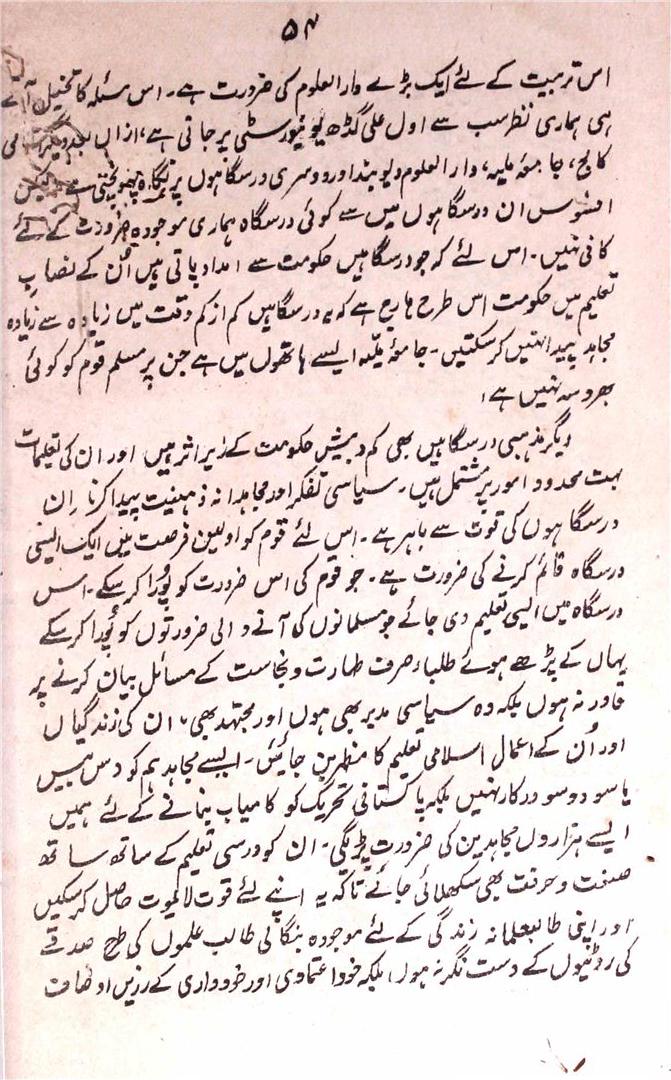 ۵۴
اس تربیت کے لئے ایک بڑے دارالعلوم کی ضرورت ہے۔ اس مسئلہ کا تخیل آتے
ہی ہماری نظر سب سے اول علی گڈھ یونیورسٹی پر جاتی ہے، ازاں بعد
کالج، جامعہ ملیہ، دارالعلوم دیوبند اور دوسری درسگاہوں پر نگاہ پھونچتی ہے۔ لیکن
افسوس ان درسگاہوں میں سے کوئی درسگاہ ہماری موجودہ ضرورت کے لئے
کافی نہیں۔ اس لئے کہ جو درسگاہیں حکومت سے امداد پاتی ہیں اُن کے نصابِ
تعلیم میں حکومت اس طرح ہارج ہے کہ یہ درسگاہیں کم از کم وقت میں زیادہ سے زیادہ
مجاہد پیدا نہیں کر سکتیں۔ جامعہ ملیہ ایسے ہاتھوں میں ہے جن پر مسلم قوم کو کوئی
بھروسہ نہیں ہے،
دیگر مذہبی درسگاہیں بھی کم و بیش حکومت کے زیر اثر ہیں اور ان کی تعلیمات
بہت محدود امور پر مشتمل ہیں۔ سیاسی تفکر اور مجاہدانہ ذہنیت پیدا کرنا ان
درسگاہوں کی قوت سے باہر ہے۔ اس لئے قوم کو اولین فرصت میں ایک ایسی
درسگاہ قائم کرنے کی ضرورت ہے۔ جو قوم کی اس ضرورت کو پُورا کر سکے۔ اس
درسگاہ میں ایسی تعلیم دی جائے جو مسلمانوں کی آنے والی ضرورتوں کو پُورا کر سکے
یہاں کے پڑھے ہوئے طلباء صرف طہارت و نجاست کے مسائل بیان کرنے پر
قادر نہ ہوں بلکہ وہ سیاسی مدبر بھی ہوں اور مجتہد بھی، ان کی زندگیاں
اور اُن کے اعمال اسلامی تعلیم کا مظہر بن جائیں۔ ایسے مجاہد ہم کو دس بیس
یا سو دو سو درکار نہیں بلکہ پاکستانی تحریک کو کامیاب بنانے کے لئے ہمیں
ایسے ہزاروں مجاہدین کی ضرورت پڑیگی۔ ان کو درسی تعلیم کے ساتھ ساتھ
صنعت و حرفت بھی سکھلائی جائے تاکہ یہ اپنے لئے قوت لایموت حاصل کر سکیں
اور اپنی طالبعلمانہ زندگی کے لئے موجودہ بنگالی طالب علموں کی طرح صدقے
کی روٹیوں کے دست نگر نہ ہوں بلکہ خود اعتمادی اور خودداری کے زریں اوصاف